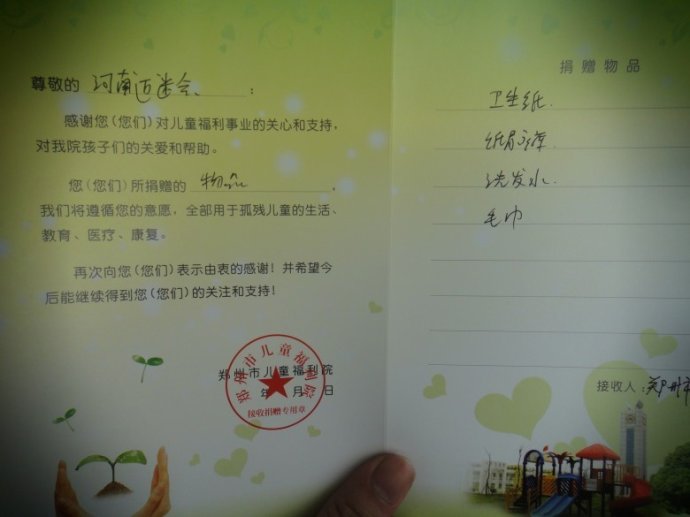 尊敬的 河南迈迷会 :
感谢您(您们)对儿童福利事业的关心和支持,
对我院孩子们的关爱和帮助。
您(您们)所捐赠的 物品 ,
我们将遵循您的意愿,全部用于孤残儿童的生活、
教育、医疗、康复。
再次向您(您们)表示由衷的感谢!并希望今
后能继续得到您(您们)的关注和支持!
郑州市儿童福利院
年 月 日
郑州市儿童福利院
接收捐赠专用章
捐赠物品
卫生纸.
纸尿裤
洗发水
毛巾
接收人:郑州市